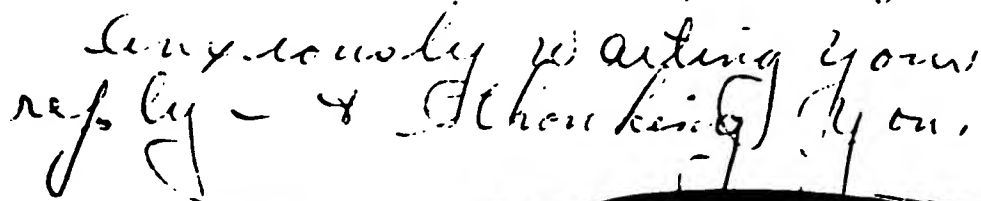 Anxiously waiting your
reply - & Thanking you.